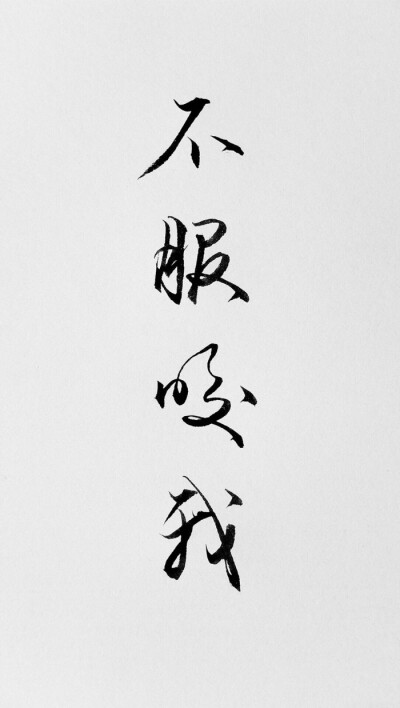 不服咬我